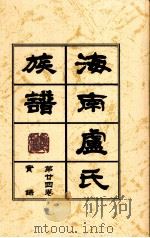 海南盧氏
族譜
第廿四卷